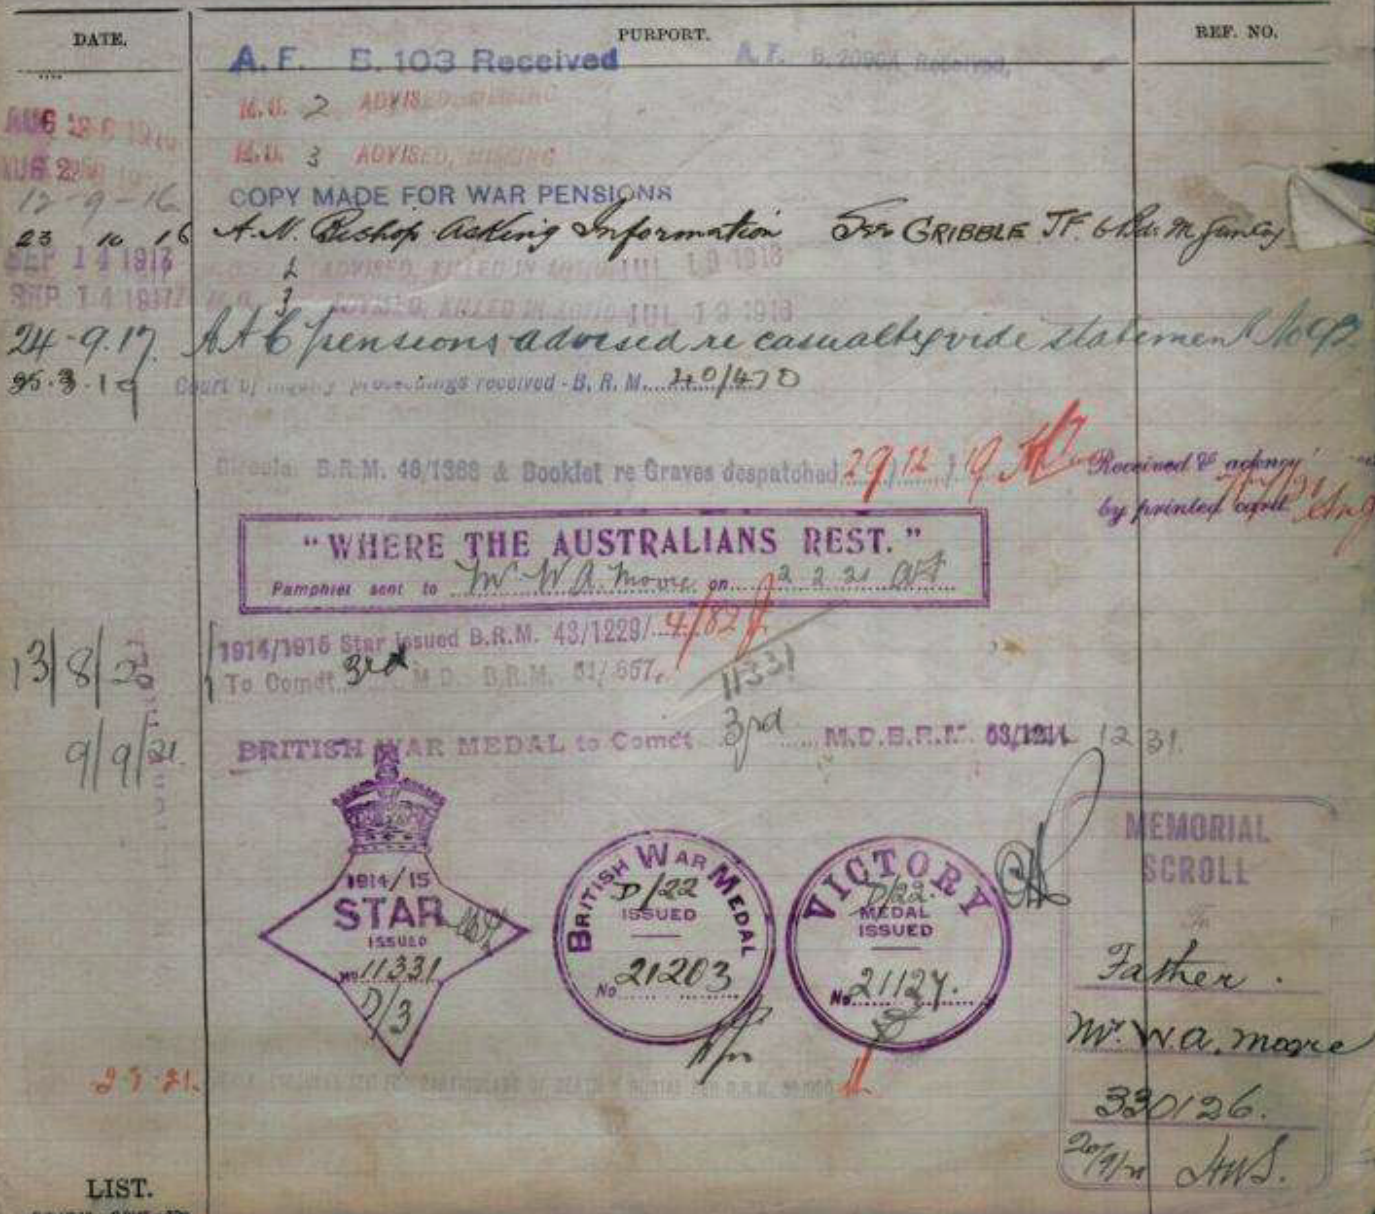 DATE.
PURPORT.
REF. NO.
A. F. B. 103 Received A. F. B. 2090A Received.
AUG 26 M.D. 2 ADVISED, MISSING
AUG M.D. 3 ADVISED, MISSING
12-9-16 COPY MADE FOR WAR PENSIONS
23 10 16 A. N. Bishop asking Information GRIBBLE J.F.
SEP 14 1917 2 ADVISED, KILLED IN JUL 19 1916
SEP 14 1917 M.D. 3 ADVISED, KILLED IN JUL 19 1916
24-9.17 pensions advised re casualty vide statement
3.19 Court of inquiry proceedings received - B. R. M. 40/470
Circular B.R.M. 46/1388 & Booklet re Graves despatched 29/12/19
Received
by printed card
"WHERE THE AUSTRALIANS REST."
Pamphlet sent to Mr W A Moore on 2 2 21
13/8/20 1914/1915 Star issued B.R.M. 43/1229/ 4/82
To Comdt 3rd M D. B.R.M. 51/657. 11331
9/9/21 BRITISH WAR MEDAL to Comdt 3rd M.D.B.R.M. 53/1214 1231.
1914/15
STAR
ISSUED
No 11331
D/3
BRITISH WAR MEDAL
D/22
ISSUED
No 21203
VICTORY
D/22.
MEDAL
ISSUED
No 21127.
MEMORIAL
SCROLL
To
Father.
Mr. W. A. Moore
330126.
HWS.
21.
LIST.